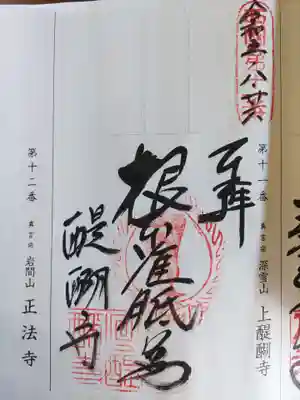 令和 八
奉拝
第十一番 真言宗 深雪山 上醍醐寺
根本准胝尊
醍醐寺
第十二番 真言宗 岩間山 正法寺